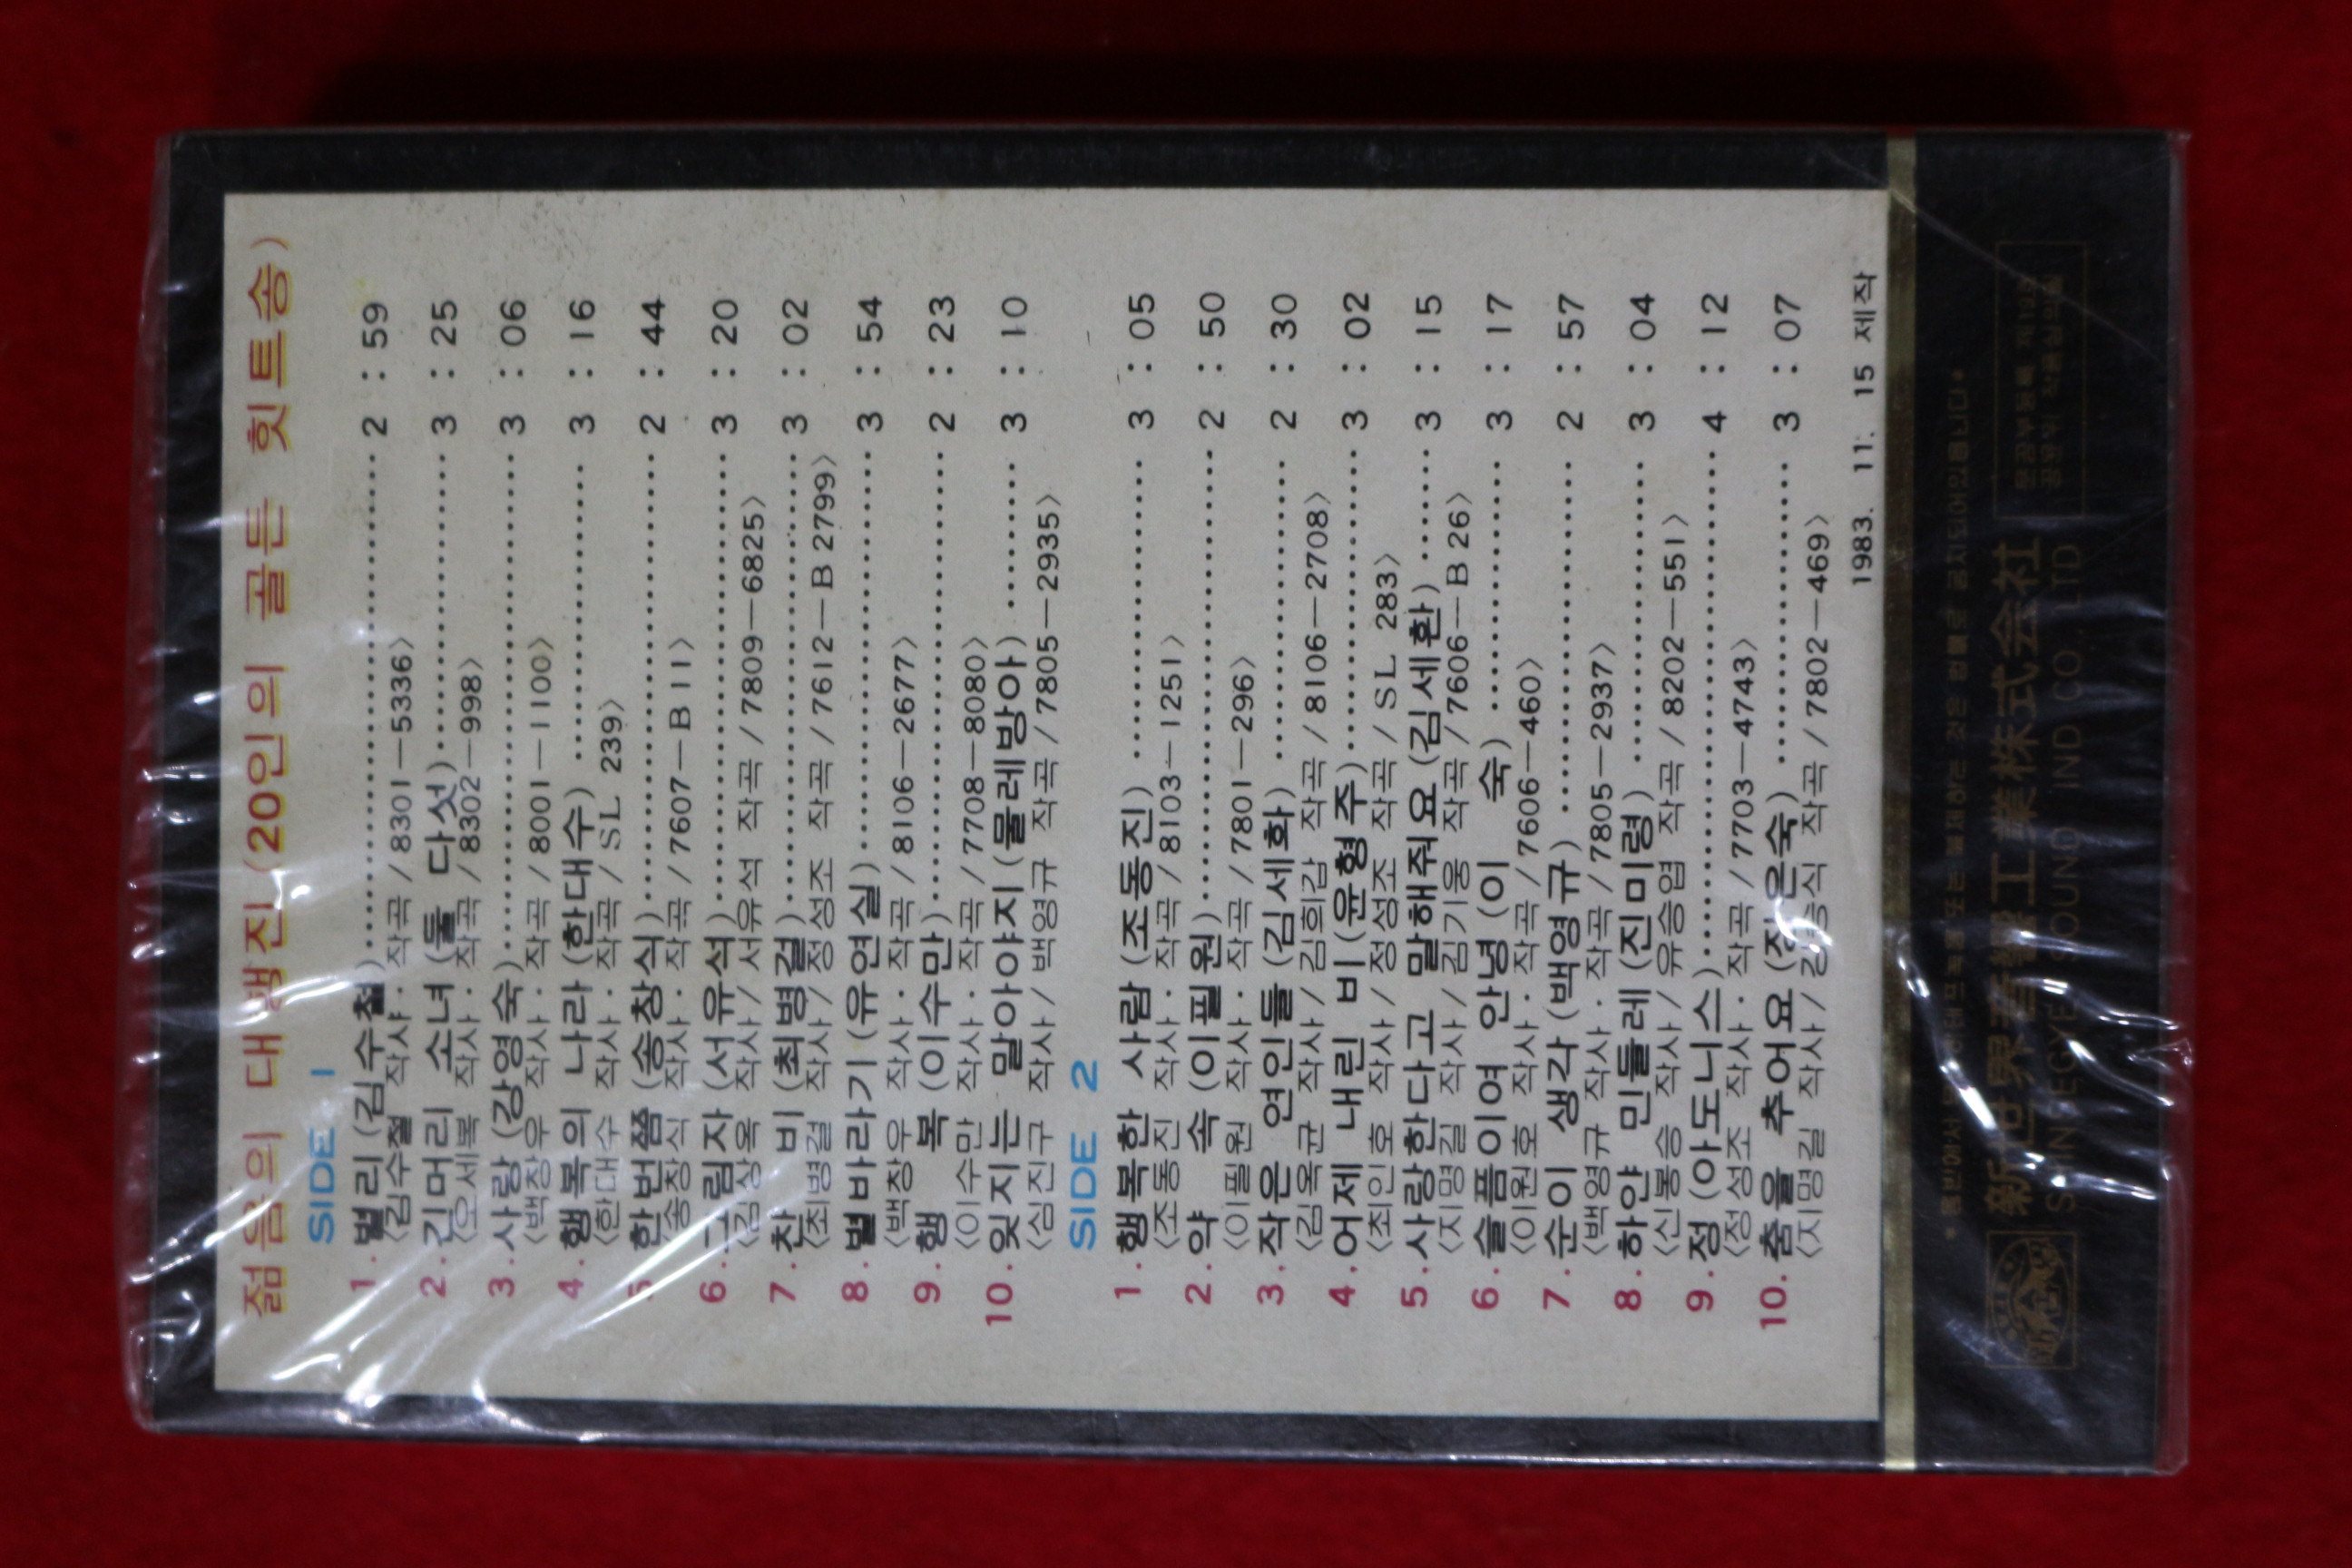 젊음의 대행진(20인의 골든 힛트송)
SIDE 1
1. 별리(김수철) 2 : 59
〈김수철 작사 · 작곡 / 8301—5336〉
2. 긴머리 소녀(둘 다섯) 3 : 25
〈오세복 작사 · 작곡 / 8302—998〉
3. 사랑(강영숙) 3 : 06
〈백창우 작사 · 작곡 / 8001—1100〉
4. 행복의 나라(한대수) 3 : 16
〈한대수 작사 · 작곡 / SL 239〉
5 한번쯤(송창식) 2 : 44
〈송창식 작사 · 작곡 / 7607—B 11〉
6. 그림자(서유석) 3 : 20
〈김상옥 작사 / 서유석 작곡 / 7809—6825〉
7. 찬 비(최병걸) 3 : 02
〈최병걸 작사 / 정성조 작곡 / 7612—B 2799〉
8. 별바라기(유연실) 3 : 54
〈백창우 작사 · 작곡 / 8106—2677〉
9. 행 복(이수만) 2 : 23
〈이수만 작사 · 작곡 / 7708—8080〉
10. 잊지는 말아야지(물레방아) 3 : 10
〈심진구 작사 / 백영규 작곡 / 7805—2935〉
SIDE 2
1. 행복한 사람(조동진) 3 : 05
〈조동진 작사 · 작곡 / 8103—1251〉
2. 약 속(이필원) 2 : 50
〈이필원 작사 · 작곡 / 7801—296〉
3. 작은 연인들(김세화) 2 : 30
〈김옥균 작사 / 김희갑 작곡 / 8106—2708〉
4. 어제 내린 비(윤형주) 3 : 02
〈최인호 작사 / 정성조 작곡 / SL 283〉
5. 사랑한다고 말해줘요(김세환) 3 : 15
〈지명길 작사 / 김기웅 작곡 / 7606—B 26〉
6. 슬픔이여 안녕(이 숙) 3 : 17
〈이원호 작사 · 작곡 / 7606—460〉
7. 순이 생각(백영규) 2 : 57
〈백영규 작사 · 작곡 / 7805—2937〉
8. 하얀 민들레(진미령) 3 : 04
〈신봉승 작사 / 유승엽 작곡 / 8202—551〉
9. 정(아도니스) 4 : 12
〈정성조 작사 · 작곡 / 7703—4743〉
10. 춤을 추어요(장은숙) 3 : 07
〈지명길 작사 / 작곡 / 7802—469〉
1983. 11. 15 제작
또는 복제하는 것은 법률로 금지되어있읍니다*
新世界音響工業株式会社
SHINSEGYE SOUND IND CO., LTD